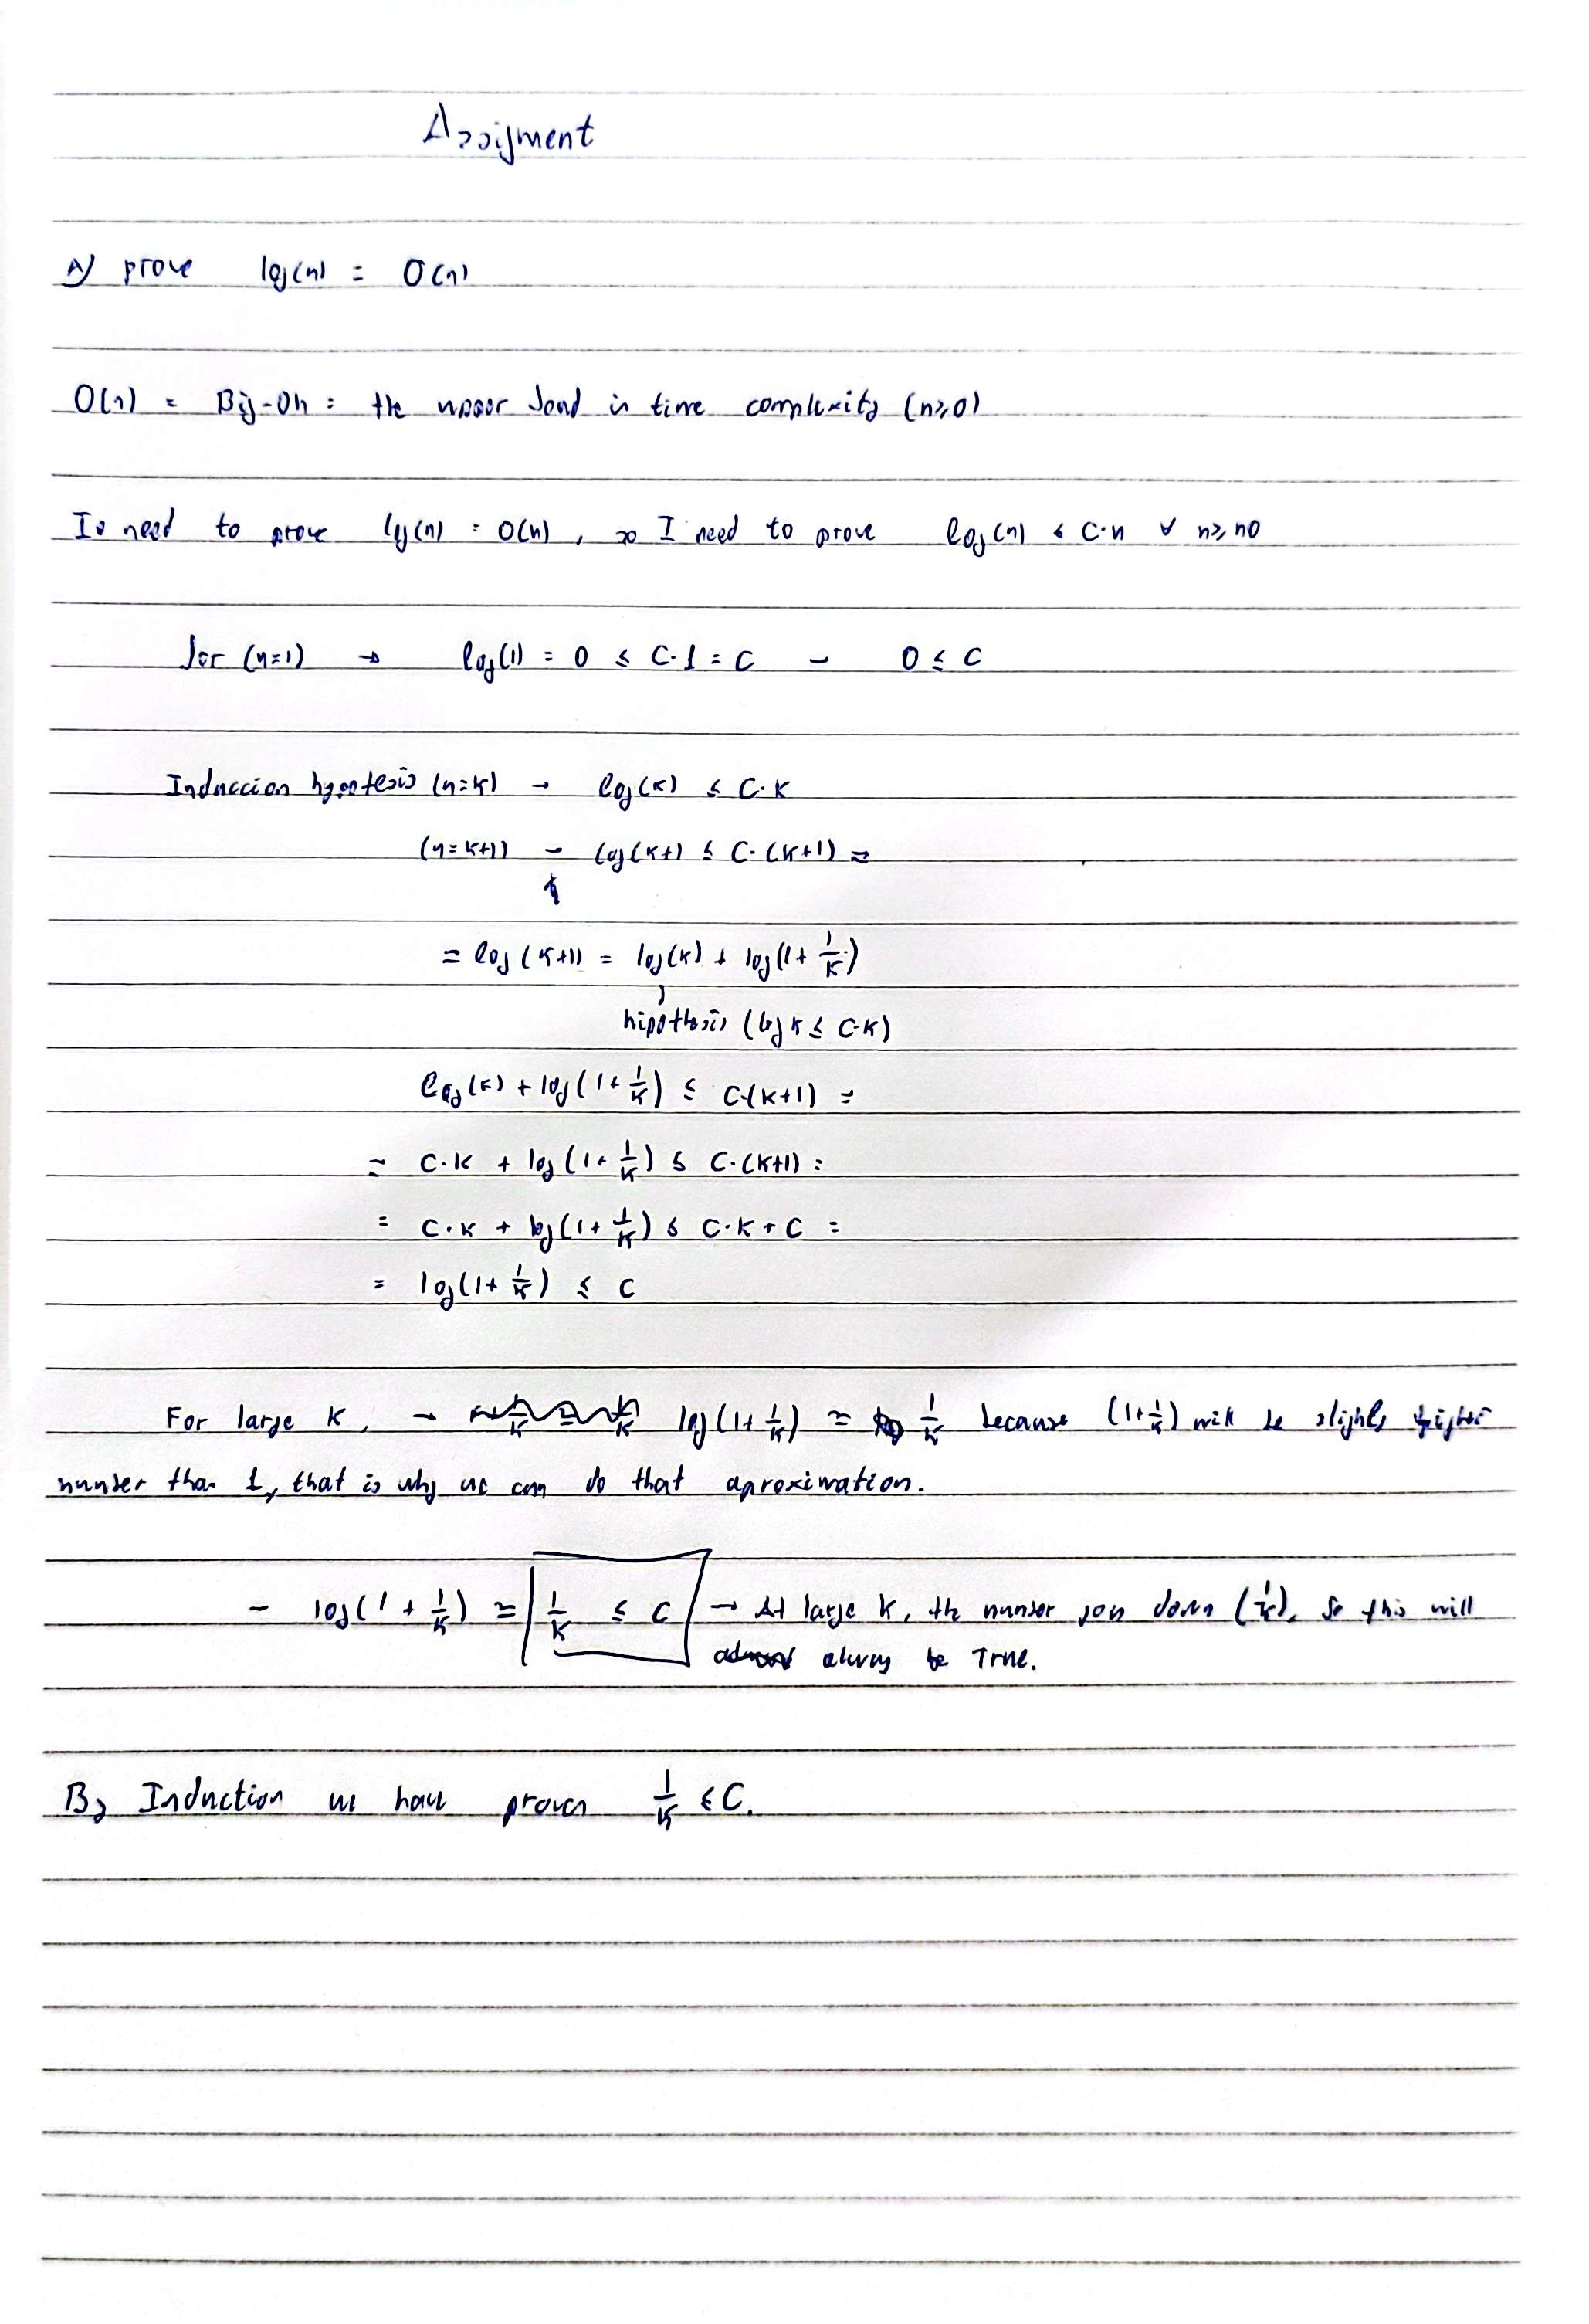 Assigment
A) prove log(n) = O(n)
O(n) = Big-Oh: the upper bond in time complexity (n≥0)
Is need to prove log(n) = O(n), so I need to prove log(n) ≤ C·n ∀ n≥n0
for (n=1) → log(1) = 0 ≤ C·1 = C – 0 ≤ C
Induccion hypotesis (n=k) → log(k) ≤ C·K
(n=k+1) – log(k+1 ≤ C·(k+1) =
= log(k+1) = log(k) + log(1+1/k)
hipothesis (log k ≤ C·K)
log(k) + log(1+1/k) ≤ C·(k+1) =
= C·K + log(1+1/k) ≤ C·(k+1) =
= C·K + log(1+1/k) ≤ C·K + C =
= log(1+1/k) ≤ C
For large K, → log(1+1/k) ≈ 1/k because (1+1/k) will be slighly
number than 1, that is why we can do that aproximation.
– log(1+1/k) ≈ 1/k ≤ C → At large k, the number down (1/k), so this will
always be True.
By Induction we have proven 1/k ≤ C.